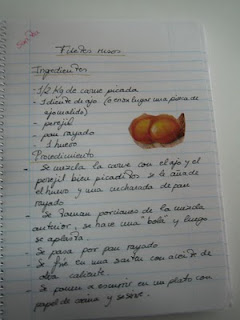 Filetes rusos
Ingredientes
- 1/2 Kg de carne picada
- 1 diente de ajo (o en su lugar una pizca de
ajo molido)
- perejil
- pan rayado
- 1 huevo
Procedimiento
- Se mezcla la carne con el ajo y el
perejil bien picaditos se le añade
el huevo y una cucharada de pan
rayado
- Se toman porciones de la mezcla
anterior, se hace una "bola" y luego
se aplasta.
- Se pasa por pan rayado
- Se fríe en una sartén con aceite de
oliva caliente.
- Se ponen a escurrir en un plato con
papel de cocina y se sirve.